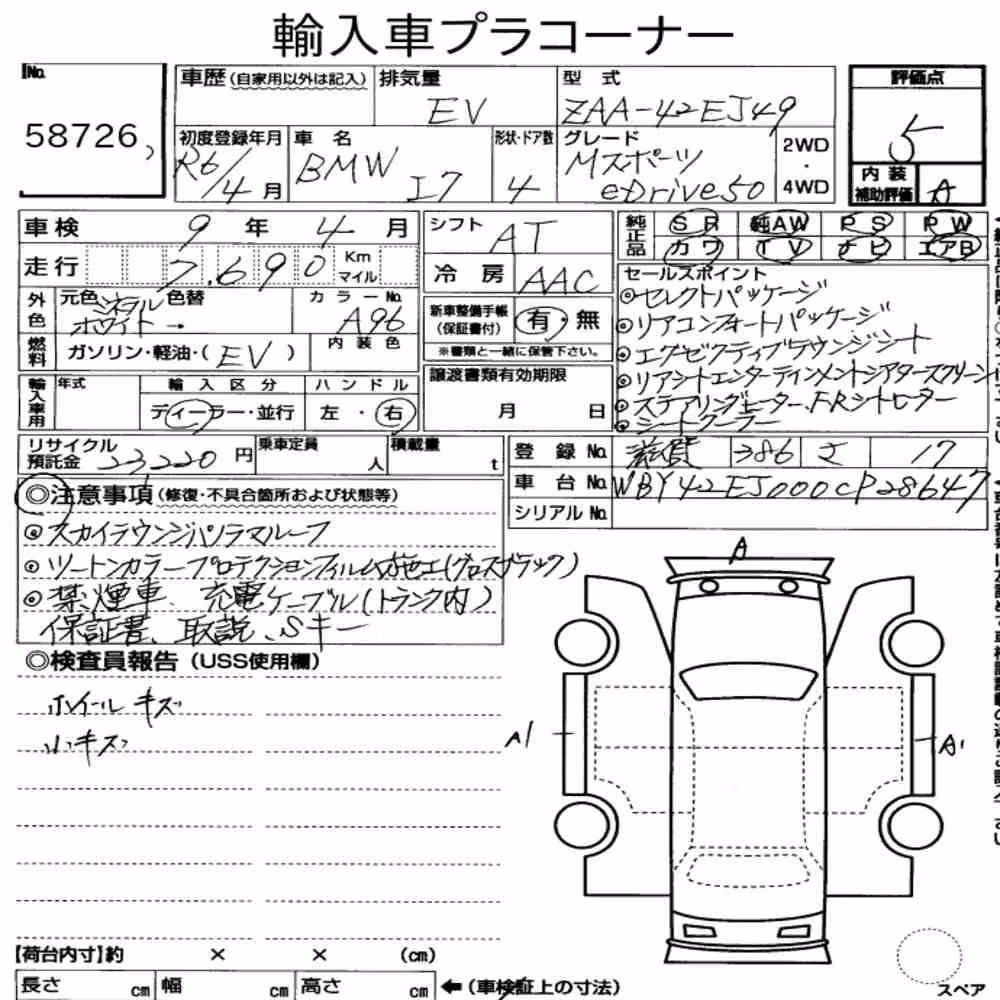 輸入車プラコーナー
No. 58726
車歴 (自家用以外は記入) 排気量 EV 型式 ZAA-42EJ49
評価点 5
初度登録年月 R6/4月 車名 BMW I7 形状・ドア数 4 グレード Mスポーツ eDrive50 2WD・4WD
内装補助評価 A
車検 9年 4月 シフト AT 純正品 SR 純AW PS PW
カワ TV ナビ エアB
走行 7,690 Km マイル 冷房 AAC
セールスポイント
外色 元色 ミネラルホワイト→ 色替 カラーNo. A96
新車整備手帳 (保証書付) 有・無
※書類と一緒に保管下さい。
燃料 ガソリン・軽油・( EV ) 内装色
◎セレクトパッケージ
◎リアコンフォートパッケージ
◎エグゼクティブラウンジシート
◎リアシートエンターテインメントシアタースクリーン
◎ステアリングヒーター、FRシートヒーター
◎シートクーラー
輸入車用 年式 輸入区分 ディーラー・並行 ハンドル 左・右
譲渡書類有効期限 月 日
リサイクル預託金 23220円 乗車定員 人 積載量 t
登録No. 滋賀 386 さ 17
車台No. WBY42EJ000CP28647
シリアルNo.
◎注意事項 (修復・不具合箇所および状態等)
◎スカイラウンジパノラマルーフ
◎ツートンカラープロテクションフィルム施工(グロスブラック)
◎禁煙車、充電ケーブル(トランク内)
保証書、取説、Sキー
◎検査員報告 (USS使用欄)
ホイールキズ
小キズ
A
A1 A1
【荷台内寸】約 × × (cm)
長さ cm 幅 cm 高さ cm ←(車検証上の寸法)
スペア